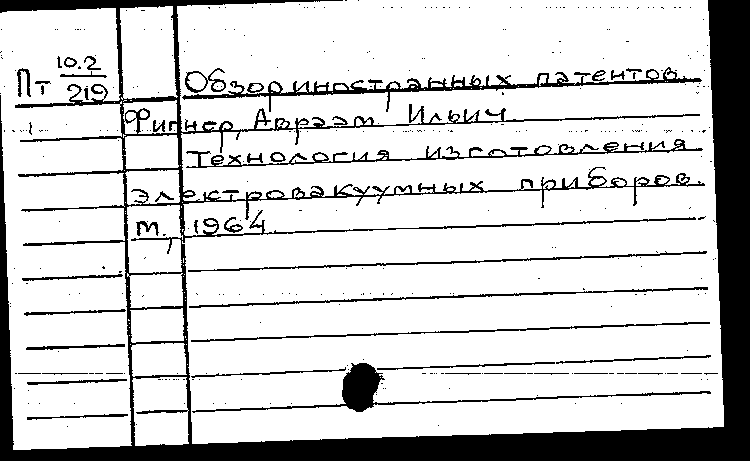 Пт 10.2/219
Обзор иностранных патентов.
Фигнер, Авраам Ильич
Технология изготовления
электровакуумных приборов.
М., 1964.